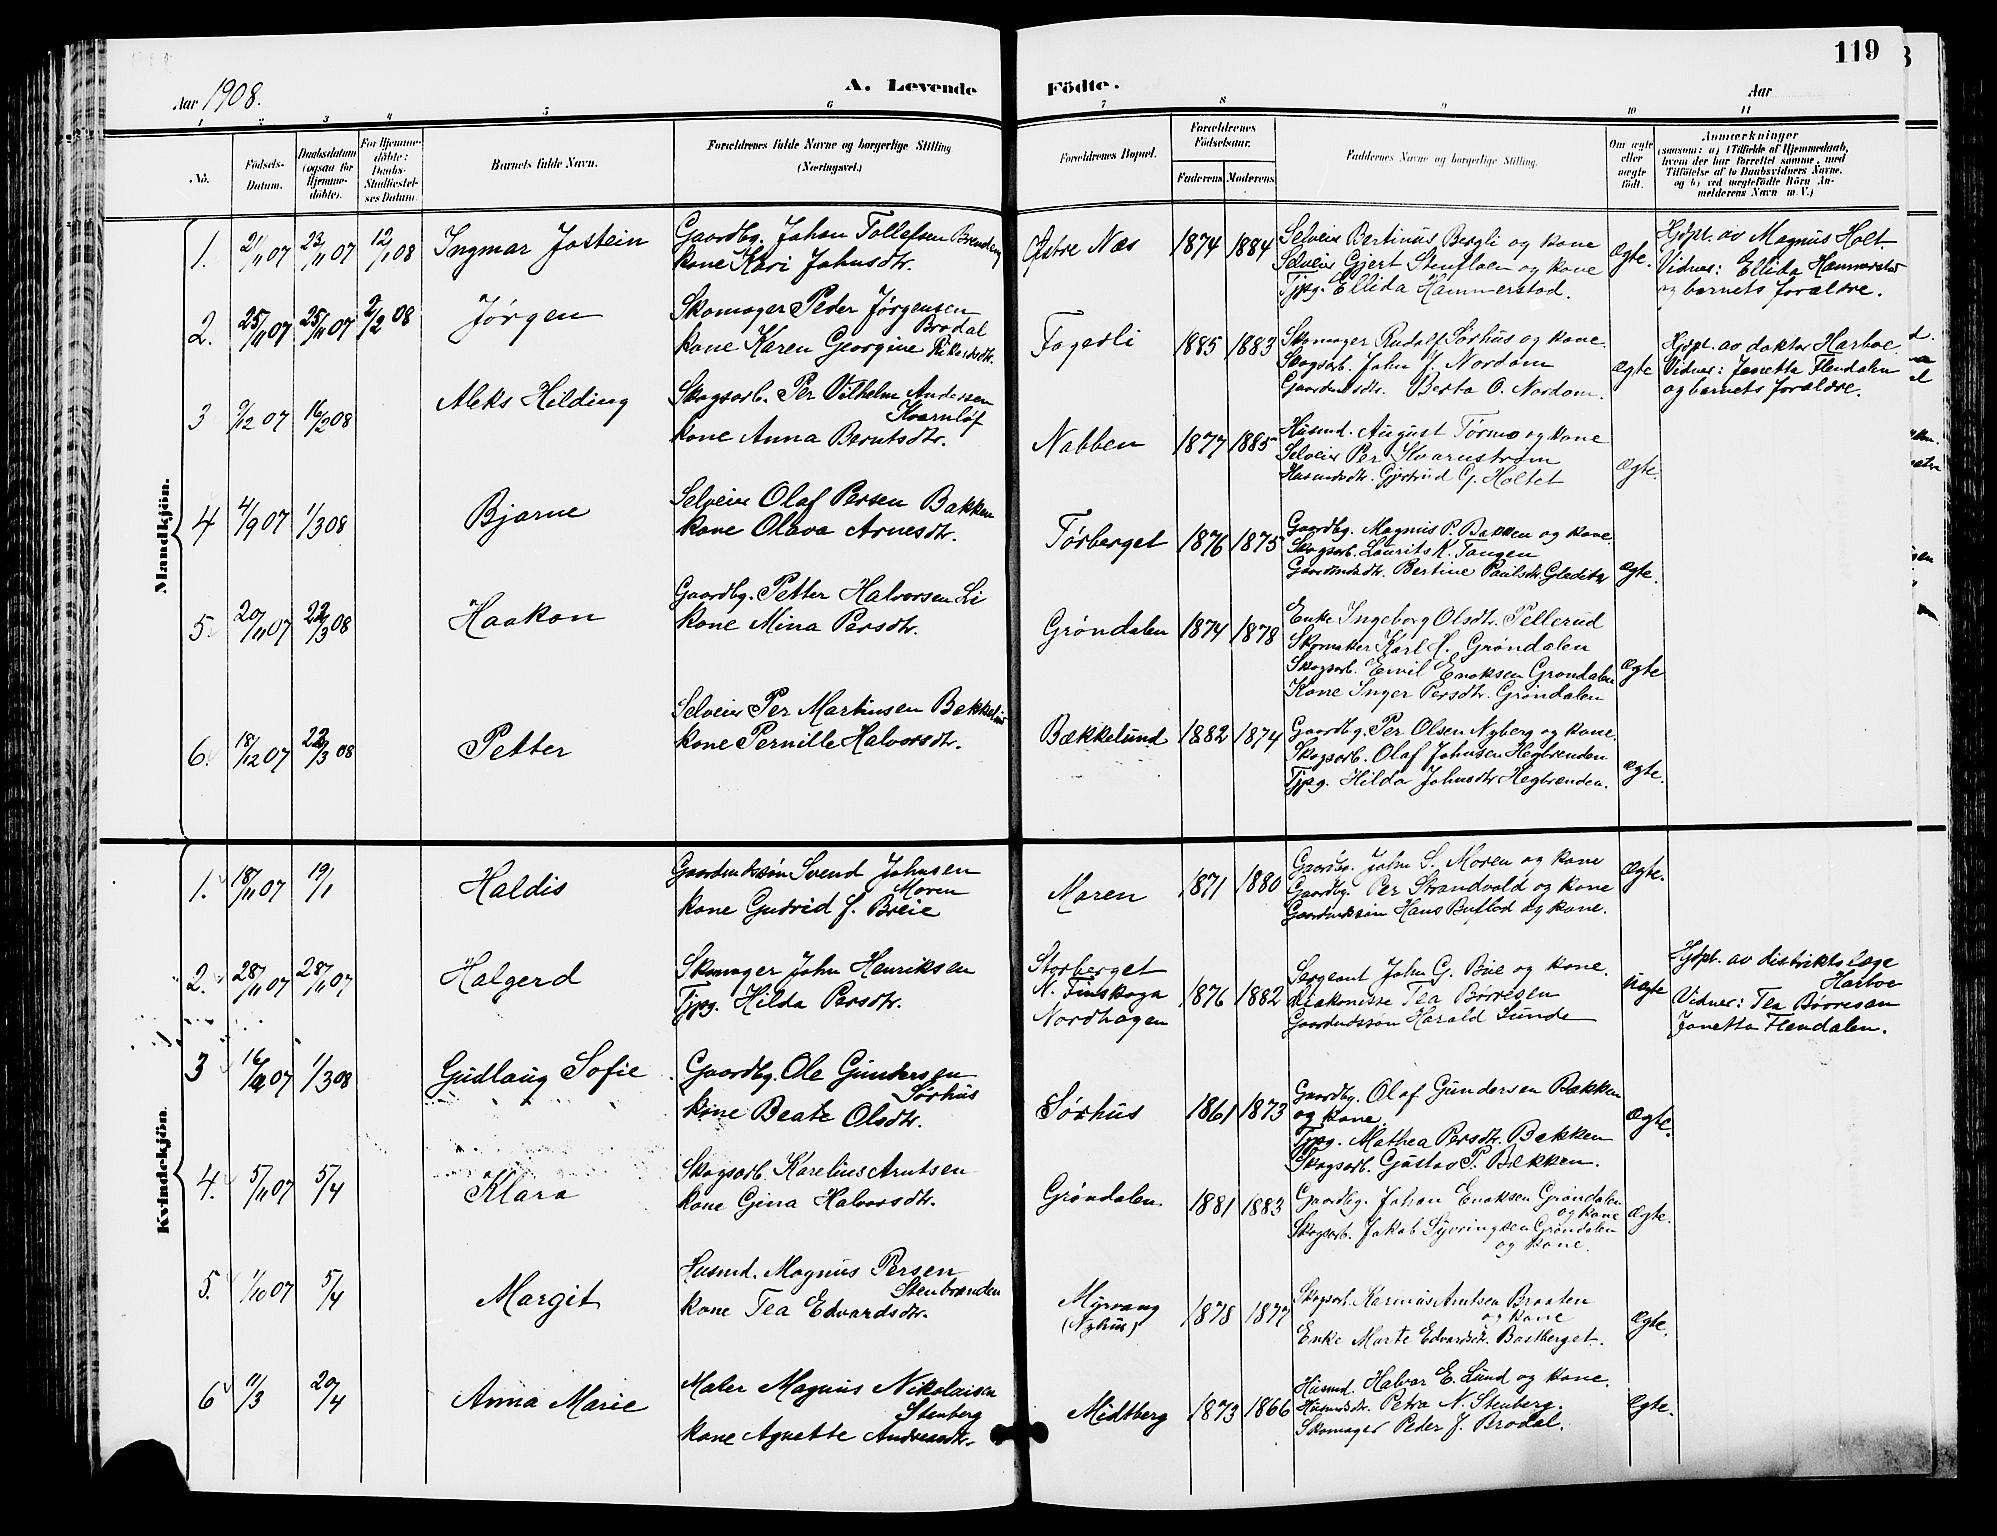 119
Aar 1908.
A. Levende Födte.
Aar
1 2 3 4 5 6 7 8 9 10 11
No.
Födsels-Datum.
Daabsdatum (ogsaa for Hjemmedöbte).
For Hjemmedöbte: Daabs-Stadfæstelses Datum.
Barnets fulde Navn.
Forældrenes fulde Navne og borgerlige Stilling (Næringsvei.)
Forældrenes Bopæl.
Forældrenes Födselsaar.
Faderens. Moderens.
Faddernes Navne og borgerlige Stilling.
Om ægte eller uægte födt.
Anmærkninger
(saasom: a) i Tilfælde af Hjemmedaab, hvem der har forrettet samme, med Tilföielse af to Daabsvidners Navne, og b) ved uægtefödte Börn Anmelderens Navn m. V.)
Mandkjön.
1. 21/11 07 23/11 07 12/1 08 Ingmar Jostein
Gaardbg. Johan Tollefsen Brenden
kone Kari Johnsdtr.
Østre Næs 1874 1884
Selveier Bertinus Bergli og kone
Selveier Gjert Stenfloen og kone
Tjpg. Ellida Hammerstad.
Ægte.
Hjdpt. av Magnus Holt
Vidner: Ellida Hammerstad
og barnets forældre.
2. 25/11 07 25/11 07 2/2 08 Jørgen
Skomager Peder Jørgensen
Brodal
kone Karen Georgine Rikardsdtr.
Fagerli 1885 1883
Skomager Rudolf Sørhus og kone.
Skogsarb. John J. Nordom
Gaardmdsdtr. Berta O. Nordom.
Ægte
Hjdpt. av doktor Harboe.
Vidner: Janetta Flendalen
og barnets forældre.
3 9/12 07 16/2 08 Aleks Hilding
Skogsarb. Per Vilhelm Andersen
Kvarnløf
kone Anna Berntsdtr.
Nabben 1877 1885
Husmd. August Tørmo og kone
Selveier Per Kvarnstrøm
Husmdsdtr. Gjertrud G. Holtet
Ægte.
4 4/9 07 1/3 08 Bjarne
Selveier Olaf Persen Bakken
kone Olava Arnesdtr.
Tørberget 1876 1875
Gaardbg. Magnus P. Bakken og kone.
Skogsarb. Laurits K. Tangen
Gaardmdsdtr. Bertine Paulsdtr. Gleditz
Ægte.
5. 20/11 07 22/3 08 Haakon
Gaardbg. Petter Halvorsen Li
kone Mina Persdtr.
Grøndalen 1874 1878
Enke Ingeborg Olsdtr. Pellerud
Skomaker Karl H. Grøndalen
Skogsarb. Emil Enoksen Grøndalen
Kone Inger Persdtr. Grøndalen
Ægte
6. 18/12 07 22/3 08 Petter
Selveier Per Martinsen Bækkelund
kone Pernille Halvorsdtr.
Bækkelund 1882 1874
Gaardbg. Per Olsen Nyberg og kone.
Skogsarb. Olaf Johnsen Hegbrenden
Tjpg. Hilda Johnsdtr Hegbrenden.
Ægte.
Kvindekjön.
1. 18/11 07 19/1 Haldis
Gaardmdssøn Svend Johnsen
Moren
kone Gudrid J. Breie
Moren 1871 1880
Gaardbg. John S. Moren og kone
Gaardbg. Per Strandvold og kone
Gaardmdssøn Hans Buflod og kone.
Ægte.
2. 28/11 07 28/11 07 Halgerd
Skomager John Henriksen
Tjpg. Hilda Persdtr.
Storberget
N. Finskoga
Nordhagen
1876 1882
Sergeant John G. Bøe og kone.
Diakonisse Tea Børresen
Gaardmdssøn Harald Sunde
Uægte
Hjdpt. av distriktslæge
Harboe
Vidner: Tea Børresen
Janetta Flendalen.
3 16/12 07 1/3 08 Gudlaug Sofie
Gaardbg. Ole Gundersen
Sørhus
kone Beate Olsdtr.
Sørhus 1861 1873
Gaardbg. Olaf Gundersen Bækken
og kone.
Tjpg. Mathea Persdtr. Bækken
Skogsarb. Gustav P. Bækken.
Ægte.
4. 5/11 07 5/4 Klara
Skogsarb. Karelius Arntsen
kone Gina Halvorsdtr.
Grøndalen 1881 1883
Gaardbg. Johan Enoksen Grøndalen
og kone
Skogsarb. Jakob Syvringsen Grøndalen
og kone.
Ægte.
5. 1/10 07 5/4 Margit
Husmd. Magnus Persen
Stenbrænden
kone Tea Edvardsdtr.
Myrvang
(Nyhus)
1878 1877
Skogsarb. Karinus Arntsen Braaten
og kone
Enke Marte Edvardsdtr. Bastberget.
Ægte.
6 11/3 20/4 Anna Marie
Maler Magnus Nikolaisen
Stenberg
kone Agnethe Andreasdtr.
Midtberg 1873 1866
Husmd. Halvor E. Lund og kone.
Husmdsdtr. Petra N. Stenberg.
Skomager Peder J. Brodal.
Ægte.